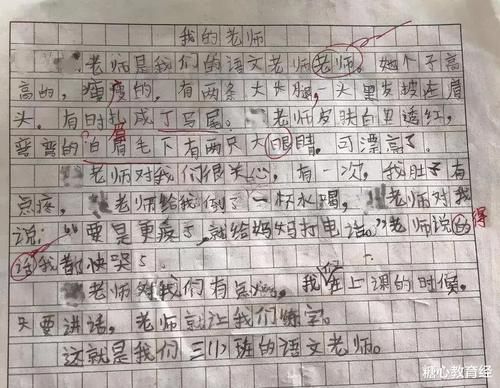 我的老师
老师是我们的语文老师老师。她个子高
高的，瘦瘦的，有两条大长腿，一头黑发披在肩
头，有时扎成丁马尾。老师皮肤白里透红，
弯弯的眉毛下有两只大眼睛，可漂亮了。
老师对我们很关心，有一次，我肚子有
点疼，老师给我倒了一杯水喝，老师对我
说：“要是更疼了，就给妈妈打电话。”老师说的得
话我都快哭了。
老师对我们有点，我在上课的时候，
只要讲话，老师就让我们练字。
这就是我们三(1)班的语文老师。
糖心教育经